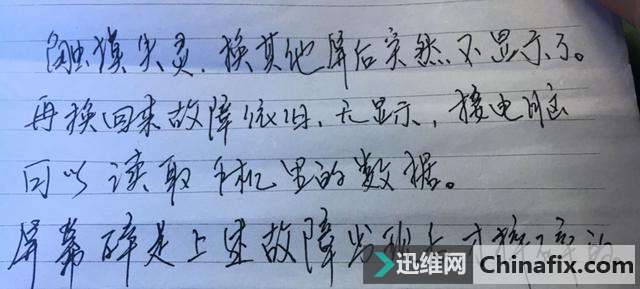 触摸失灵，换其他屏后突然不显示了。
再换回来故障依旧、无显示，接电脑
可以读取手机里的数据。
屏幕碎是上述故障出现后才摔碎的
迅维网 Chinafix.com